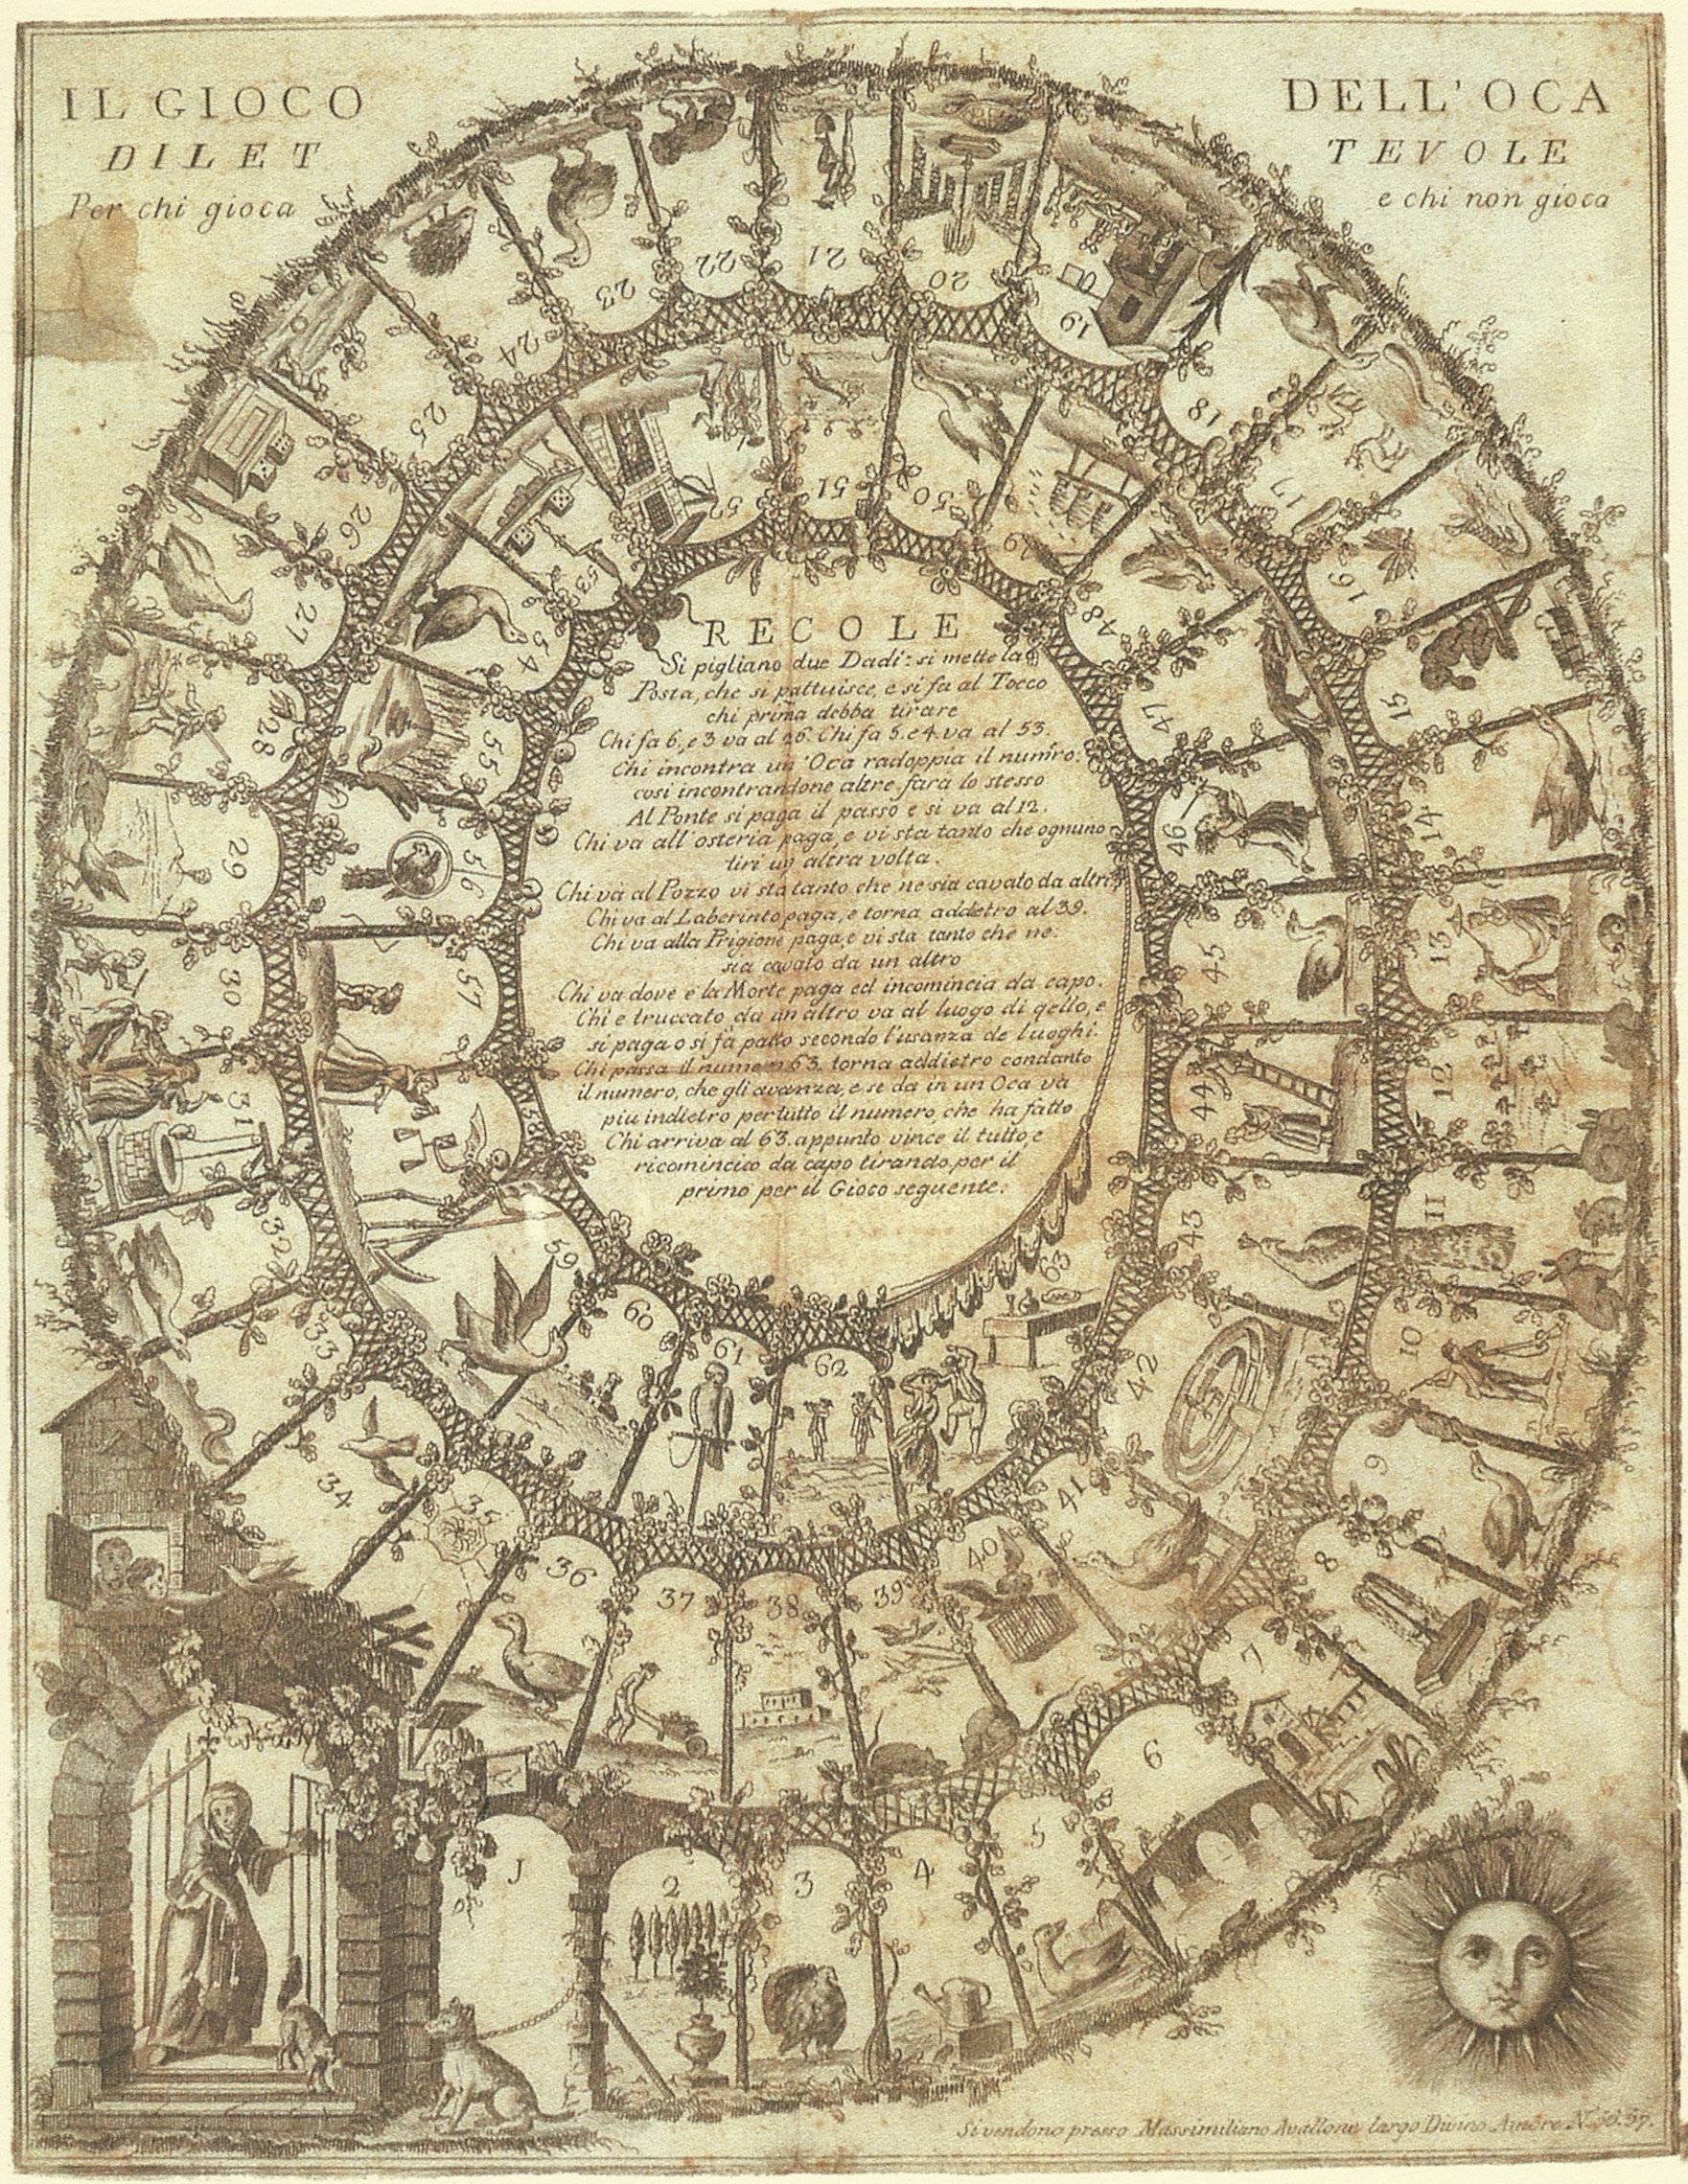 IL GIOCO DELL' OCA
DILET TEVOLE
Per chi gioca e chi non gioca
RECOLE
Si pigliano due Dadi: si mette la
Posta, che si pattuisce, e si fa al Tocco
chi prima debba tirare
Chi fa 6, e 3 va al 26. Chi fa 5. e 4. va al 53.
Chi incontra un' Oca radoppia il numro:
cosi incontrandone altre farà lo stesso
Al Ponte si paga il passo e si va al 12.
Chi va all'osteria paga, e vi sta tanto che ognuno
tiri un altra volta.
Chi và al Pozzo vi sta tanto che ne sia cavato da altri
Chi va al Laberinto paga, e torna addetro al 39.
Chi va alla Prigione paga, e vi sta tanto che ne
sia cavato da un altro
Chi va dove e la Morte paga ed incomincia da capo.
Chi e truccato da un altro va al luogo di qello, e
si paga o si fà patto secondo l'usanza de luoghi.
Chi passa il numero 63. torna addietro contanto
il numero, che gli avanza, e se da in un Oca va
piu indietro per tutto il numero, che ha fatto
Chi arriva al 63. appunto vince il tutto, e
ricomincia da capo tirando per il
primo per il Gioco seguente.
1
2
3
4
5
6
7
8
9
10
11
12
13
14
15
16
17
18
19
20
21
22
23
24
25
26
27
28
29
30
31
32
33
34
35
36
37
38
39
40
41
42
43
44
45
46
47
48
49
50
51
52
53
54
55
56
57
58
59
60
61
62
63
Si vendono presso Massimiliano Avallone largo Divino Amore N. 56. 57.